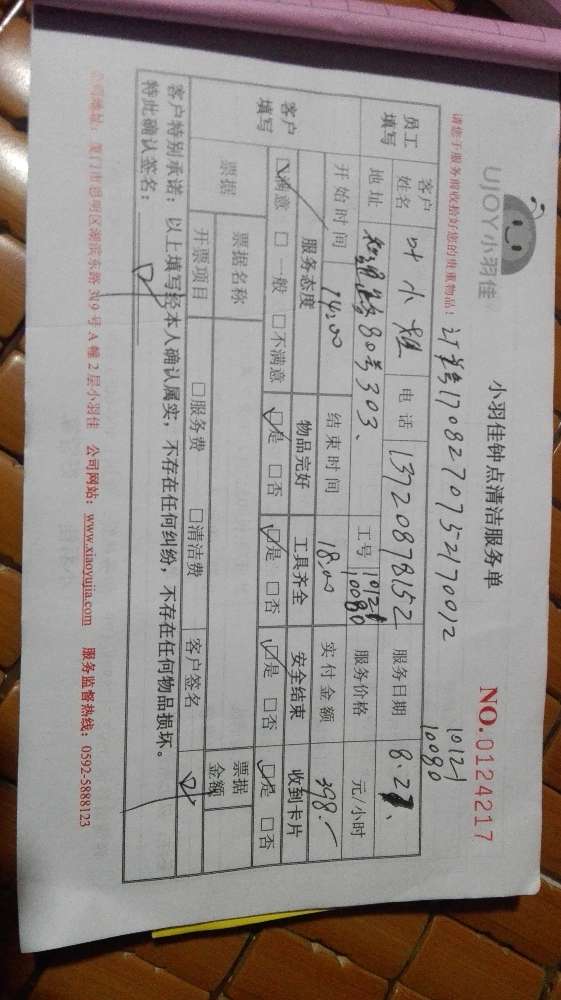 UJOY小羽佳
小羽佳钟点清洁服务单
NO.0124217
请您于服务前收拾好您的贵重物品!
订单号1708270752170012
10121
10080
员工填写
客户姓名 叶小姐 电话 13720878152 服务日期 8.27、
地址 80号303、 工号 10121 10080 服务价格 元/小时
开始时间 14:00 结束时间 18:00 实付金额 398.-
客户填写
服务态度 物品完好 工具齐全 安全结束 收到卡片
☑满意 □一般 □不满意 ☑是 □否 ☑是 □否 ☑是 □否 ☑是 □否
票据 票据名称 票据金额
开票项目 □服务费 □清洁费 客户签名
客户特别承诺:以上填写经本人确认属实,不存在任何纠纷,不存在任何物品损坏。
特此确认签名:
公司地址:厦门市思明区湖滨东路319号A幢2层小羽佳 公司网站:www.xiaoyujia.com 服务监督热线:0592-5888123